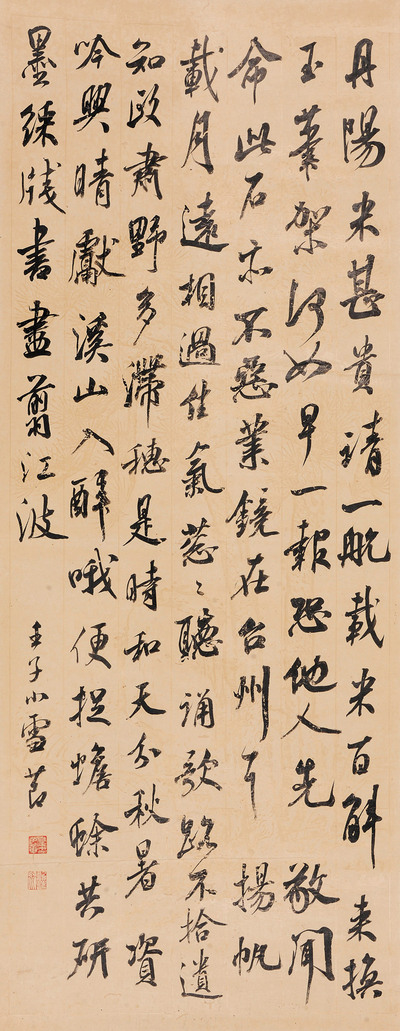 丹陽米甚貴請一航載米百斛來換
玉筆架何如早一報恐他人先敬聞
命此石亦不惡業鏡在台州下揚帆
載月遠相過佳氣葱〻聽誦歌路不拾遺
知政肅野多滯穗是時和天分秋暑資
吟興晴獻溪山入醉哦便捉蟾蜍共研
墨綵牋書盡翦江波
壬子小雪